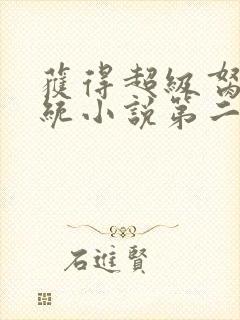 獲得超級
統小說第二
石進賢